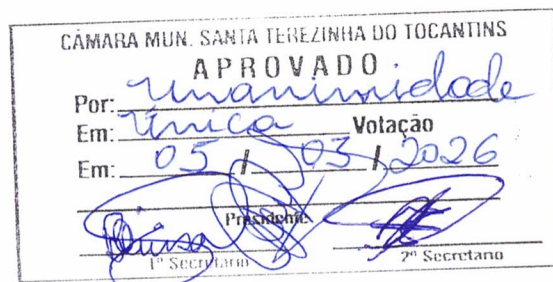 CÂMARA MUN. SANTA TEREZINHA DO TOCANTINS
APROVADO
Por: Unanimidade
Em: Única Votação
Em: 05 / 03 / 2026
Presidente
1º Secretario 2º Secretario